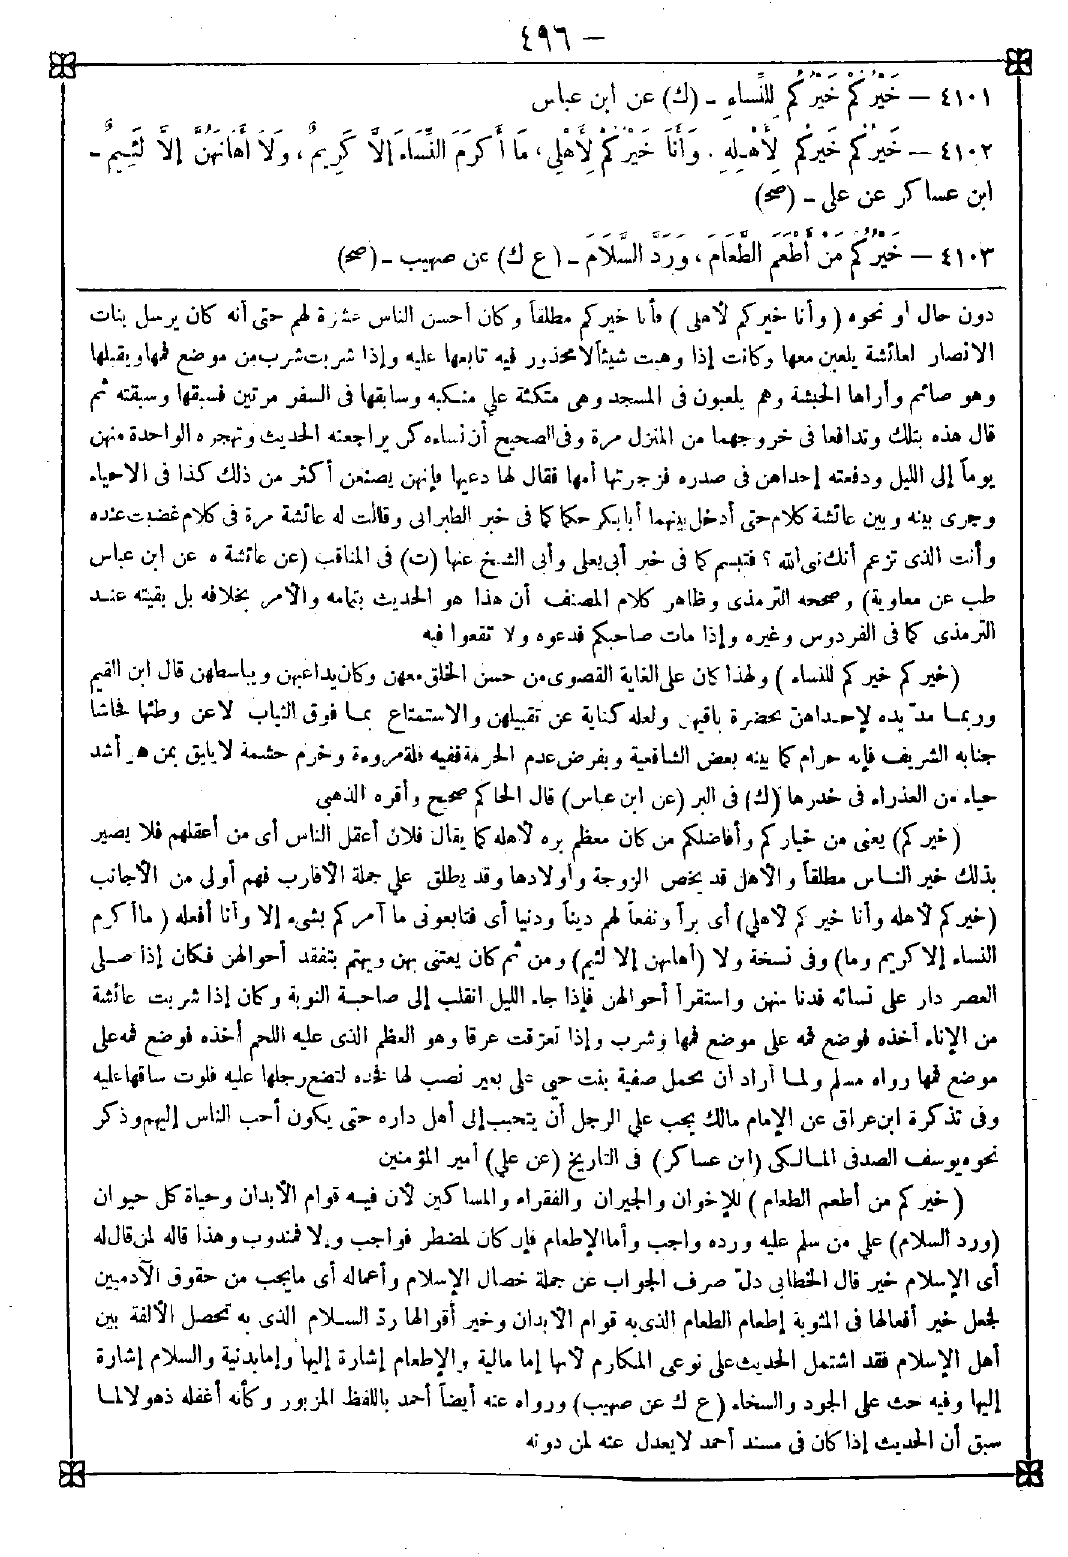 ٤٩٦ –
٤١٠١ – خَيْرُكُمْ خَيْرُكُمْ لِلنِّسَاءِ - (ك) عن ابن عباس
٤١٠٢ – خَيْرُكُمْ خَيْرُكُمْ لِأَهْلِهِ. وَأَنَا خَيْرُكُمْ لِأَهْلِي، مَا أَكْرَمَ النِّسَاءَ إِلَّا كَرِيمٌ، وَلَا أَهَانَهُنَّ إِلَّا لَئِيمٌ -
ابن عساكر عن على - (صح)
٤١٠٣ – خَيْرُكُمْ مَنْ أَطْعَمَ الطَّعَامَ، وَرَدَّ السَّلَامَ - (ع ك) عن صهيب - (صح)
دون حال أو نحوه (وأنا خيركم لأهلى) فأنا خيركم مطلقاً وكان أحسن الناس عشرة لهم حتى أنه كان يرسل بنات
الانصار لعائشة يلعبن معها وكانت إذا وهبت شيئاً لا محذور فيه تابعها عليه وإذا شربت شرب من موضع فمها ويقبلها
وهو صائم وأراها الحبشة وهم يلعبون فى المسجد وهى متكئة على منكبه وسابقها فى السفر مرتين فسبقها وسبقته ثم
قال هذه بتلك وتدافعا فى خروجهما من المنزل مرة وفى الصحيح أن نساءه كن يراجعنه الحديث وتهجره الواحدة منهن
يوماً إلى الليل ودفعته إحداهن فى صدره فزجرتها أمها فقال لها دعيها فإنهن يصنعن أكثر من ذلك كذا فى الاحياء
وجرى بينه وبين عائشة كلام حتى أدخل بينهما أبا بكر حكما كما فى خبر الطبرانى وقالت له عائشة مرة فى كلام غضبت عنده
وأنت الذى تزعم أنك نبى الله ؟ فتبسم كما فى خبر أبى يعلى وأبى الشيخ عنها (ت) فى المناقب (عن عائشة ه عن ابن عباس
طب عن معاوية) وصححه الترمذى وظاهر كلام المصنف أن هذا هو الحديث بتمامه والأمر بخلافه بل بقيته عند
الترمذى كما فى الفردوس وغيره وإذا مات صاحبكم فدعوه ولا تقعوا فيه
(خيركم خيركم للنساء) ولهذا كان على الغاية القصوى من حسن الخلق معهن وكان يداعبهن ويباسطهن قال ابن القيم
وربما مدّ يده لإحداهن بحضرة باقيهن ولعله كناية عن تقبيلهن والاستمتاع بما فوق الثياب لا عن وطئها فحاشا
جنابه الشريف فإنه حرام كما بينه بعض الشافعية وبفرض عدم الحرمة ففيه قلة مروءة وخرم حشمة لا يليق بمن هو أشد
حياء من العذراء فى خدرها (ك) فى البر (عن ابن عباس) قال الحاكم صحيح وأقره الذهبى
(خيركم) يعنى من خياركم وأفاضلكم من كان معظم بره لأهله كما يقال فلان أعقل الناس أى من أعقلهم فلا يصير
بذلك خير الناس مطلقاً والأهل قد يخص الزوجة وأولادها وقد يطلق على جملة الأقارب فهم أولى من الأجانب
(خيركم لأهله وأنا خيركم لأهلي) أى براً ونفعاً لهم ديناً ودنيا أى فتابعونى ما آمركم بشىء إلا وأنا أفعله (ما أكرم
النساء إلا كريم وما) وفى نسخة ولا (أهانهن إلا لئيم) ومن ثم كان يعتنى بهن ويهتم بتفقد أحوالهن فكان إذا صلى
العصر دار على نسائه فدنا منهن واستقرأ أحوالهن فإذا جاء الليل انقلب إلى صاحبة النوبة وكان إذا شربت عائشة
من الإناء أخذه فوضع فمه على موضع فمها وشرب وإذا تعرّقت عرقا وهو العظم الذى عليه اللحم أخذه فوضع فمه على
موضع فمها رواه مسلم ولما أراد أن يحمل صفية بنت حيى على بعير نصب لها فخذه لتضع رجلها عليه فلوت ساقها عليه
وفى تذكرة ابن عراق عن الإمام مالك يجب على الرجل أن يتحبب إلى أهل داره حتى يكون أحب الناس إليهم وذكر
نحوه يوسف الصدفى المالكى (ابن عساكر) فى التاريخ (عن علي) أمير المؤمنين
(خيركم من أطعم الطعام) للإخوان والجيران والفقراء والمساكين لأن فيه قوام الأبدان وحياة كل حيوان
(ورد السلام) على من سلم عليه ورده واجب وأما الإطعام فإن كان لمضطر فواجب وإلا فمندوب وهذا قاله لمن قال له
أى الإسلام خير قال الخطابى دلّ صرف الجواب عن جملة خصال الإسلام وأعماله أى ما يجب من حقوق الآدميين
فجعل خير أفعالها فى المثوبة إطعام الطعام الذى به قوام الأبدان وخير أقوالها ردّ السلام الذى به تحصل الألفة بين
أهل الإسلام فقد اشتمل الحديث على نوعى المكارم لأنها إما مالية والإطعام إشارة إليها وإما بدنية والسلام إشارة
إليها وفيه حث على الجود والسخاء (ع ك عن صهيب) ورواه عنه أيضاً أحمد باللفظ المزبور وكأنه أغفله ذهولا لما
سبق أن الحديث إذا كان فى مسند أحمد لا يعدل عنه لمن دونه